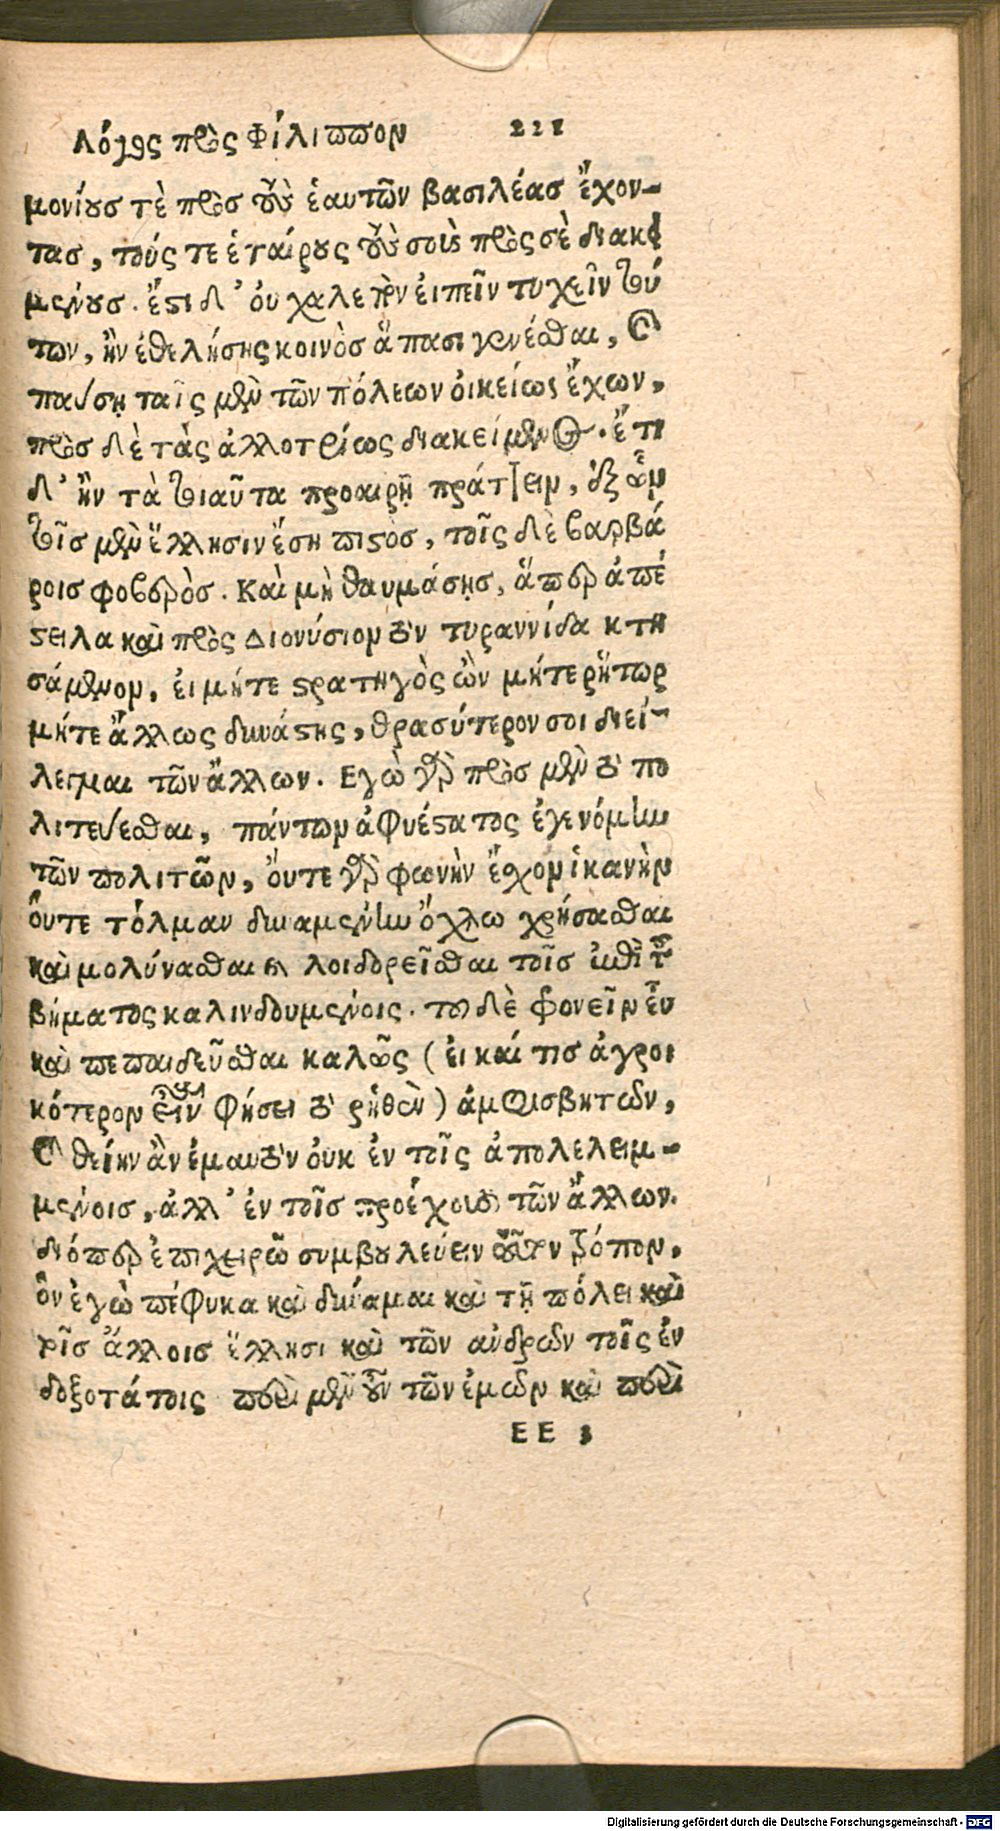 Λόγος πρὸς Φίλιππον 221
μονίους τὲ πρὸσ τοὺς ἑαυτῶν βασιλέασ ἔχον-
τασ, τούς τε ἑταίρους τοὺς σοὺς πρὸς σὲ διακει
μένουσ. ἔστι δ' ὀυ χαλεπὸν ἐιπεῖν τυχεῖν τού
των, ἢν ἐθελήσης κοινὸσ ἅπασι γενέσθαι, καὶ
παύσῃ ταῖς μὲν τῶν πόλεων ὀικείως ἔχων,
πρὸσ δὲ τὰς ἀλλοτρίως διακείμενος. ἔτι
δ' ἢν τὰ τοιαῦτα προαιρῇ πράττειν, ἐξ ὧν
τοῖσ μὲν ἕλλησιν ἔσῃ πιστὸσ, τοῖς δὲ βαρβά
ροισ φοβερὸσ. Καὶ μὴ θαυμάσῃσ, ἅπερ ἀπέ
στειλα καὶ πρὸς Διονύσιον τὸν τυραννίδα κτη
σάμενον, ἐι μήτε στρατηγὸς ὢν μήτε ῥήτωρ
μήτε ἄλλως δυνάστης, θρασύτερον σοι διεί-
λεγμαι τῶν ἄλλων. Εγὼ γὰρ πρὸσ μὲν τὸ πο
λιτεύεσθαι, πάντων ἀφυέστατος ἐγενόμην
τῶν πολιτῶν, ὄυτε γὰρ φωνὴν ἔσχον ἱκανὴν
ὄυτε τόλμαν δυναμένην ὄχλω χρήσασθαι
καὶ μολύνασθαι καὶ λοιδορεῖσθαι τοῖσ ἐπὶ τοῦ
βήματος καλινδουμένοις. του δὲ φρονεῖν ἐυ
καὶ πεπαιδεῦσθαι καλῶς (ἐι καί τισ ἀγροι
κότερον εἶναι φήσει τὸ ῥηθὲν) ἀμφισβητῶν,
καὶ θείην ἂν ἐμαυτὸν ὀυκ ἐν τοῖς ἀπολελειμ-
μένοισ, ἀλλ' ἐν τοῖσ προέχουσι τῶν ἄλλων.
διόπερ ἐπιχειρῶ συμβουλεύειν τοῦτον τρόπον,
ὃν ἐγὼ πέφυκα καὶ δύναμαι καὶ τῇ πόλει καὶ
τοῖσ ἄλλοισ ἕλλησι καὶ τῶν ἀνδρῶν τοῖς ἐν
δοξοτάτοις περὶ μὲν οὖν τῶν ἐμῶν καὶ περὶ
EE 3
Digitalisierung gefördert durch die Deutsche Forschungsgemeinschaft - DFG